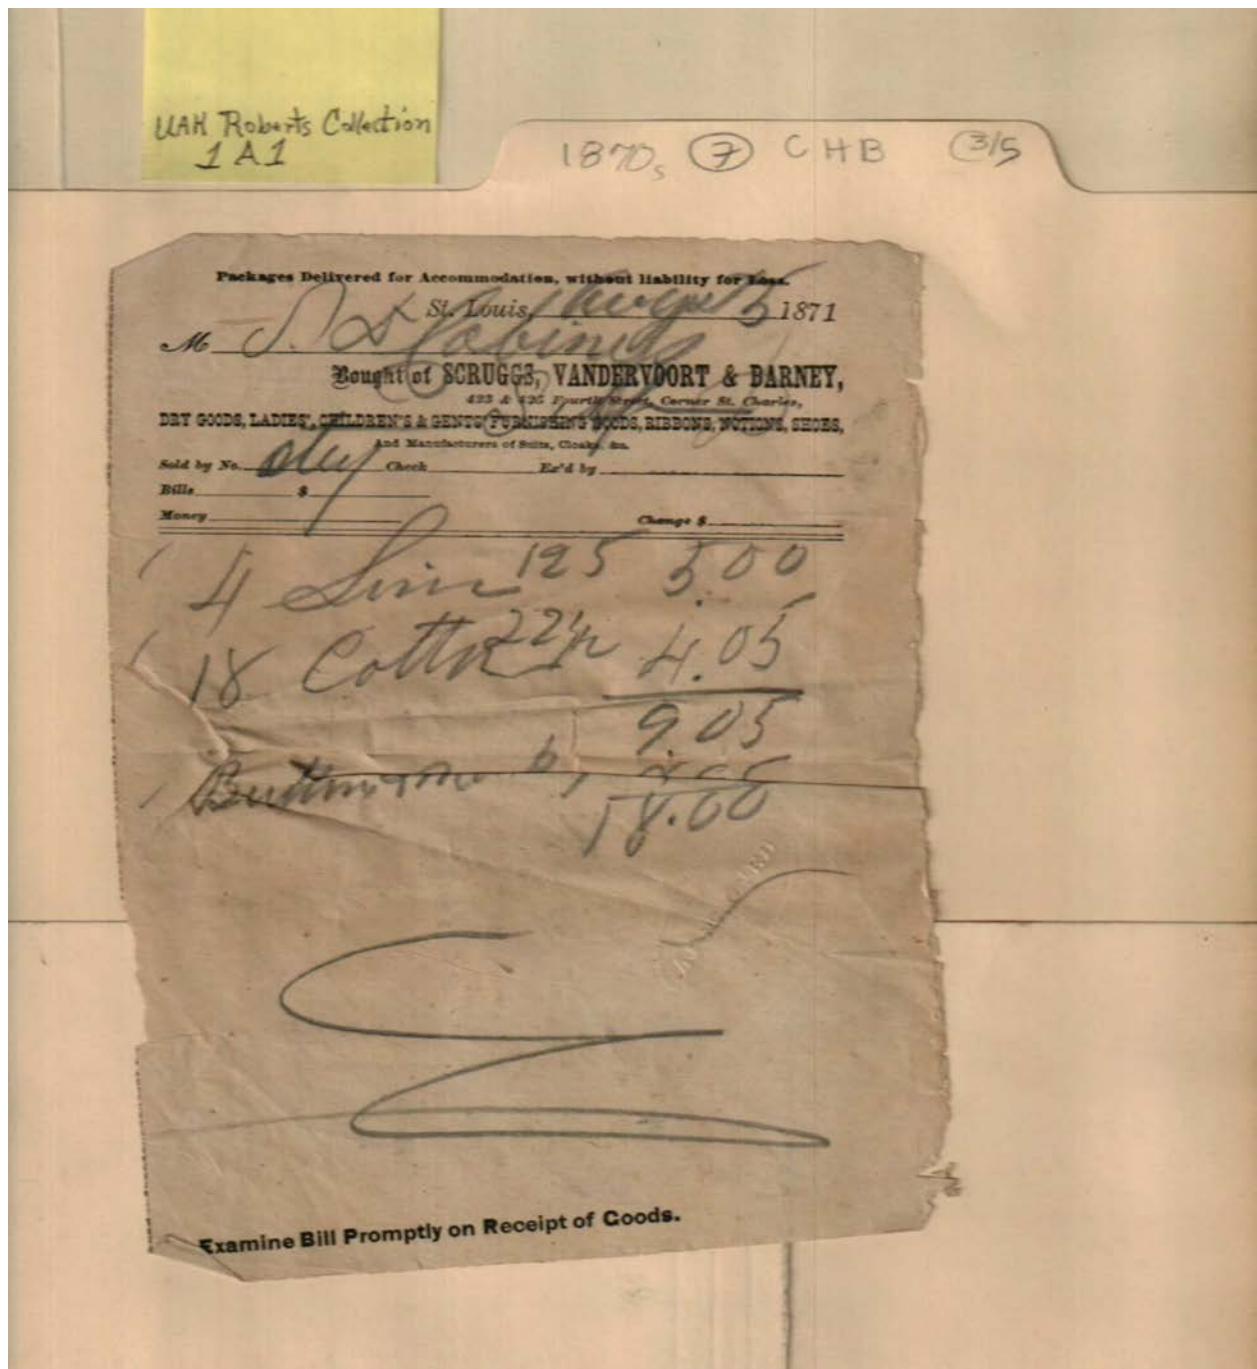 UAH Roberts Collection
1 A 1
1870s 7 CHB 3/5
Packages Delivered for Accommodation, without liability for Loss.
St. Louis, August 5 1871
M J. D
Bought of SCRUGGS, VANDERVOORT & BARNEY,
423 & 425 Fourth Street, Corner St. Charles,
DRY GOODS, LADIES', CHILDREN'S & GENTS' FURNISHING GOODS, RIBBONS, NOTIONS, SHOES,
And Manufacturers of Suits, Cloaks, &c.
Sold by No. Check Ex'd by
Bills $
Money Change $
4 125 5.00
18 Cotton 22½ 4.05
9.05
18.00
Examine Bill Promptly on Receipt of Goods.